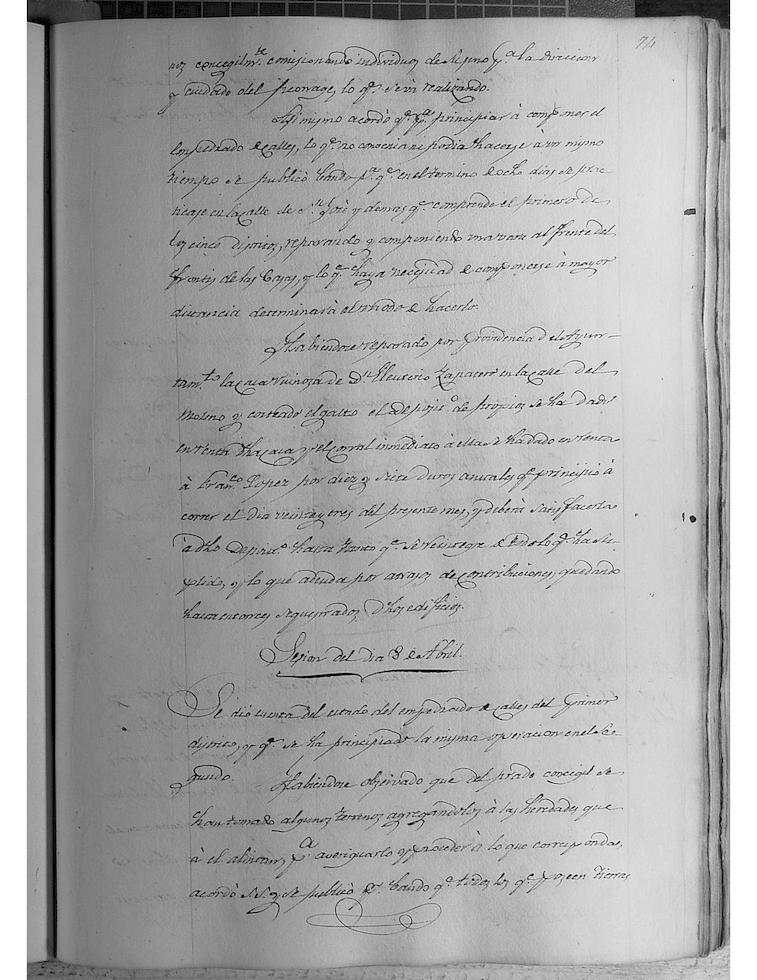 74
concegilm.te comisionando individuos de su seno p.a la direccion
y cuidado del peonage, lo q.e se irá realizando.
Asi mismo acordó q.e p.a principiar á componer el
empedrado de calles, lo q.e no convenia ni podia hacerse á un mismo
tiempo se publicó bando p.a q.e en el termino de ocho dias se prac-
ticase en la calle de S.n José y demas q.e comprende el primero de
los cinco distritos, reparando y componiendo una vara al frente del
frontis de las Casas, y lo q.e haya necesidad de componerse á mayor
distancia determinará el modo de hacerlo.
Habiendose reparado por Providencia del Ayun-
tam.to la casa ruinosa de D.n Eleuterio Zapatero en la Calle del
Molino y costeado el gasto el deposit.o de propios se ha dado
en renta dha casa y el corral inmediato á ella se ha dado en renta
á Fran.co Lopez por diez y siete duros anuales q.e principió á
correr el dia veinte y tres del presente mes, y deberá satisfacerla
á dho Deposit.o hasta tanto q.e se reintegre de todo lo q.e ha su-
plido, y lo que adeuda por atrasos de contribuciones, quedando
hasta entonces sequestrados dhos edificios.
Sesion del dia 8 de Abril.
Se dio cuenta del estado del empedrado de calles del Primer
distrito, y q.e se ha principiado la misma operacion en el Se-
gundo. Habiendose observado que del prado concegil se
han tomado algunos terrenos agregandolos á las heredades que
á el alindan, p.a averiguarlo y proceder á lo que corresponda,
acordó S.S. y se publicó p.r bando q.e todos los q.e poseen tierras